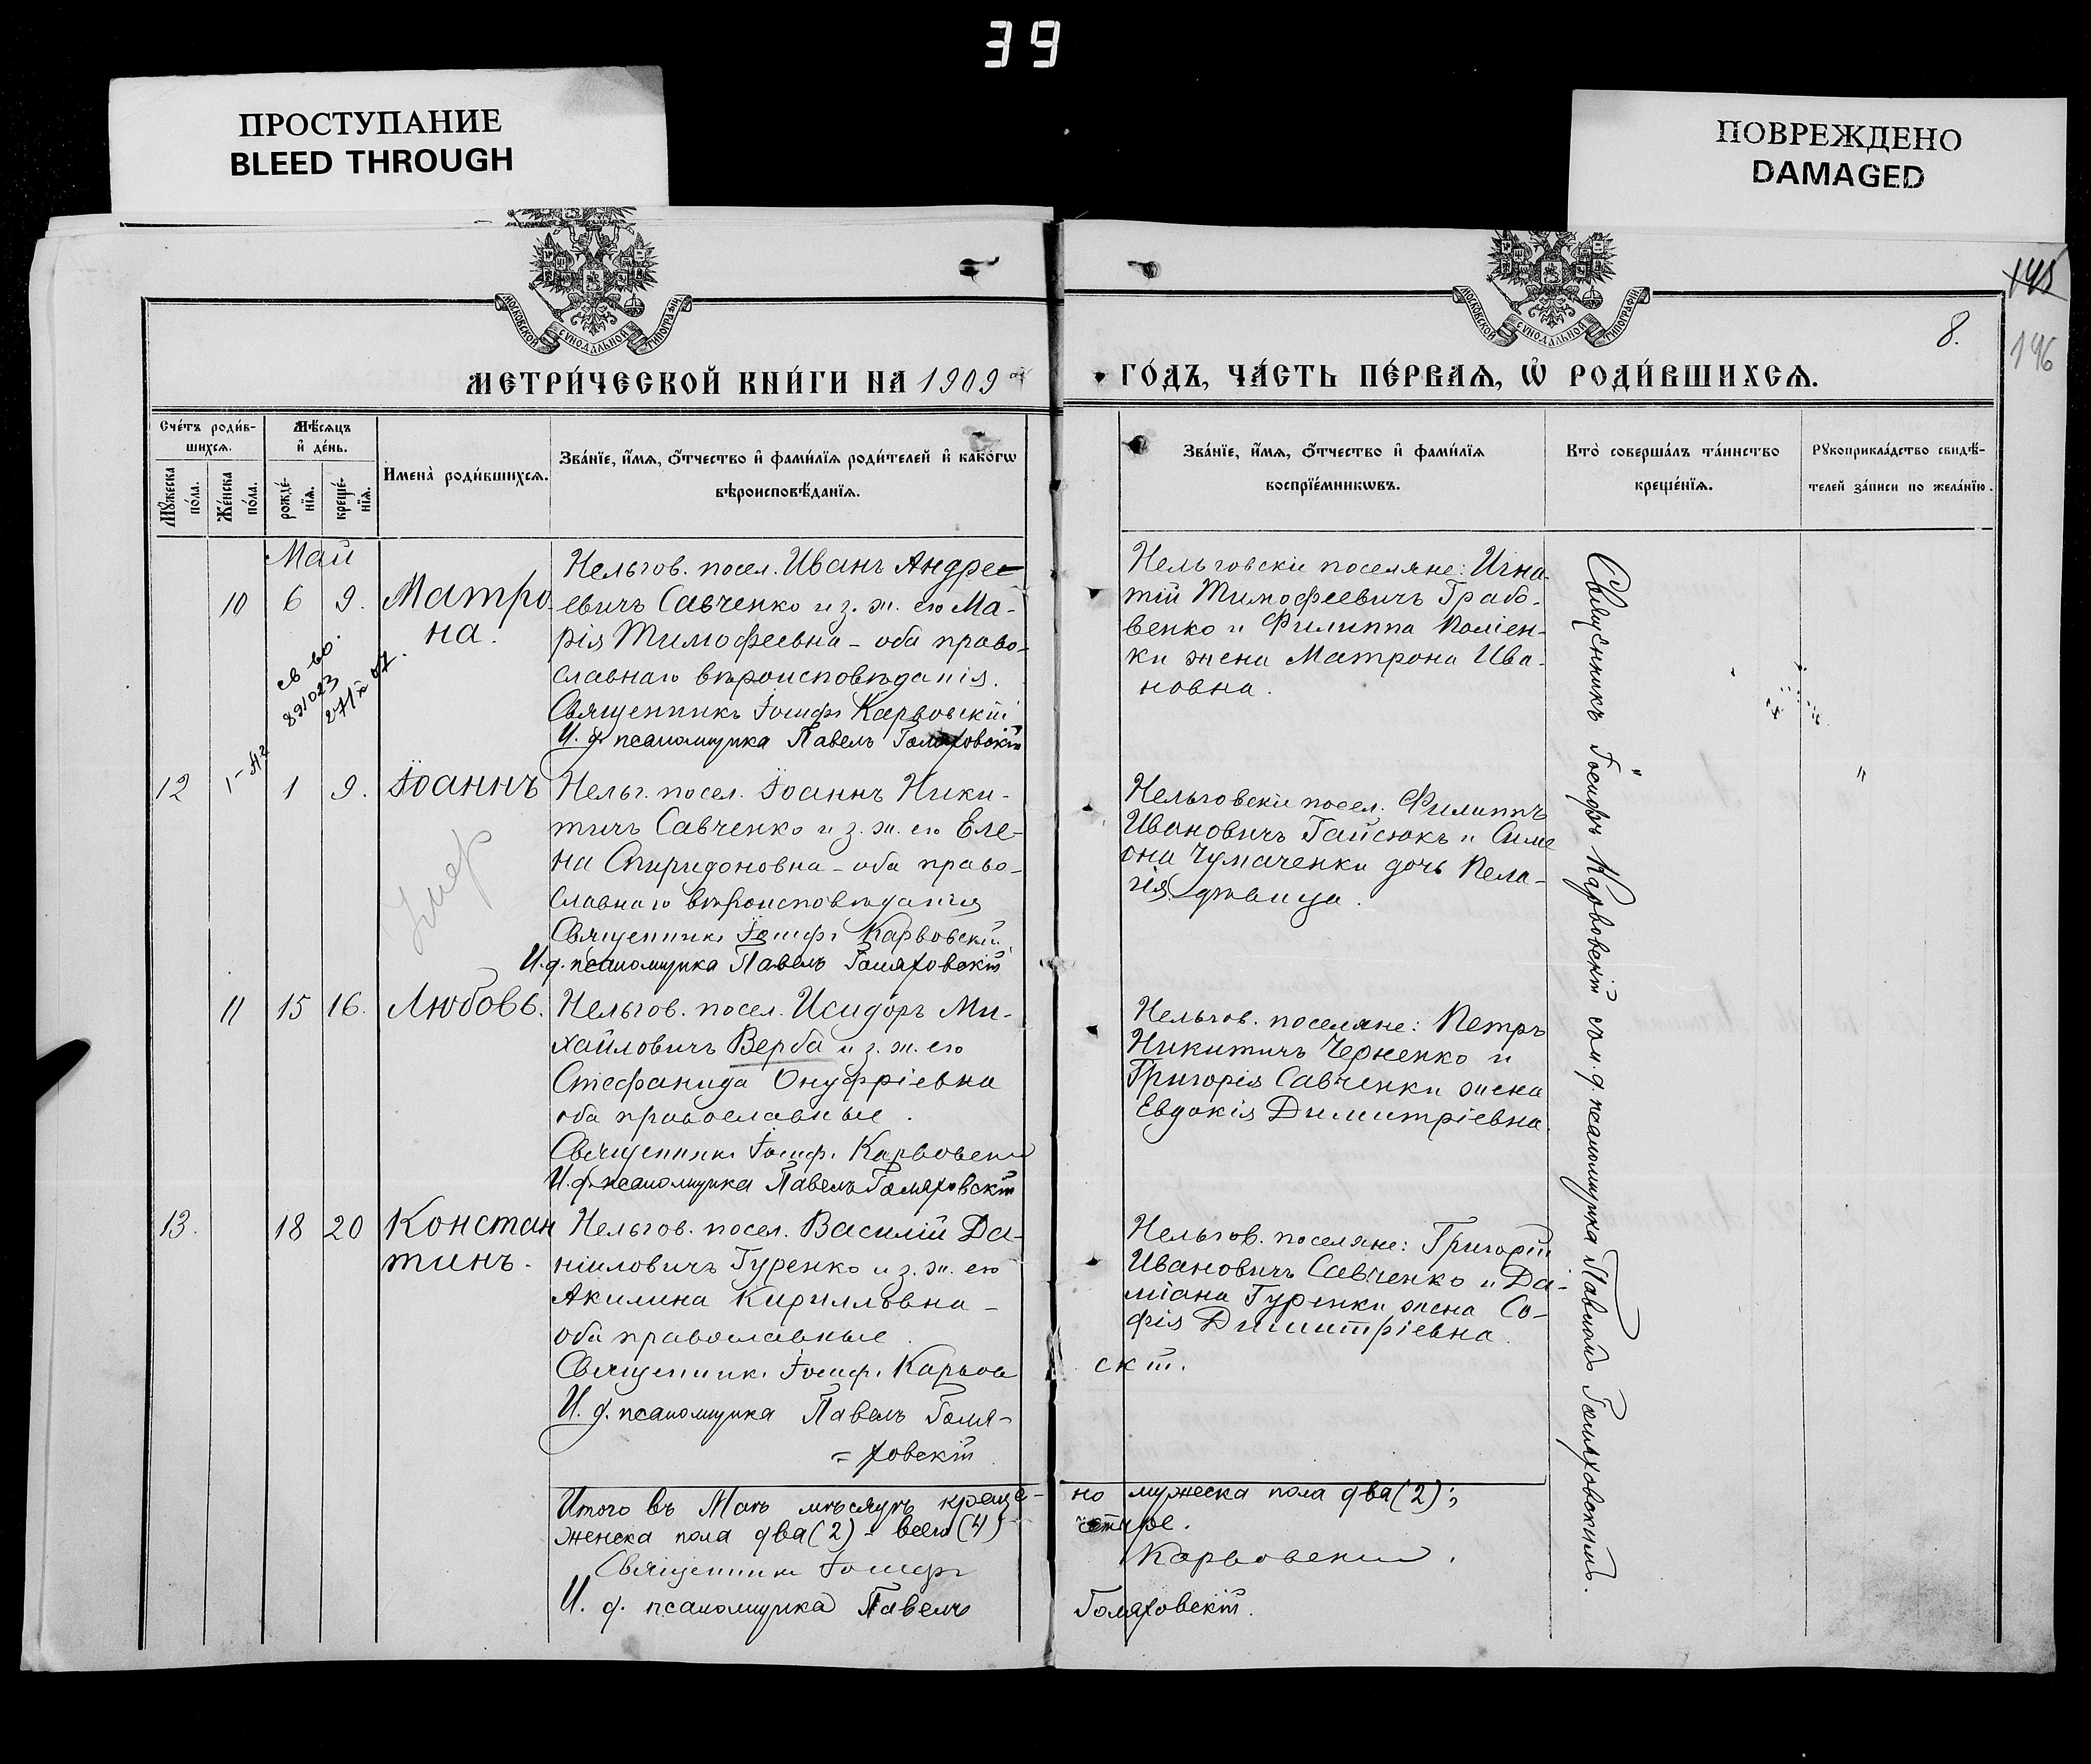 39
ПРОСТУПАНИЕ
BLEED THROUGH
ПОВРЕЖДЕНО
DAMAGED
МОСКОВСКОЙ СѴНОДАЛЬНОЙ ТИПОГРАФІИ
МОСКОВСКОЙ СѴНОДАЛЬНОЙ ТИПОГРАФІИ
145
8.
196
МЕТРИ́ЧЕСКОЙ КНИ́ГИ НА 1909
ГО́ДЪ, ЧА́СТЬ ПЕ́РВАѦ, Ѡ҆ РОДИ́ВШИХСѦ.
Сче́тъ роди́в-
шихсѧ.
Мꙋ́жеска по́ла.
Же́нска по́ла.
Мѣ́сѧцъ
и҆ де́нь.
рожде́-
нїѧ.
креще́-
нїѧ.
И҆мена̀ роди́вшихсѧ.
Зва́нїе, и҆́мѧ, ѻ҆́тчество и҆ фами́лїѧ роди́телей и҆ како́гѡ
вѣроисповѣ́данїѧ.
Зва́нїе, и҆́мѧ, ѻ҆́тчество и҆ фами́лїѧ
воспрїе́мникѡвъ.
Кто̀ соверша́лъ та́инство
креще́нїѧ.
Рꙋкоприкла́дство свидѣ́-
телей за́писи по жела́нїю.
Май
10 6 9.
Матро-
на.
св-во.
891023
Нельгов. посел. Иванъ Андре-
евичъ Савченко и з. ж. его Ма-
рія Тимофеевна - оба право-
славнаго вѣроисповѣданія.
Священникъ Іосифъ Карвовскій
И. д. псаломщика Павелъ Голяховскій
Нельговскіе поселяне: Игна-
тій Тимофеевичъ Грабо-
венко и Филиппа Поліен-
ки жена Матрона Ива-
новна.
12 1 9. Іоаннъ
Умер
Нельг. посел. Іоаннъ Ники-
тичъ Савченко и з. ж. его Еле-
на Спиридоновна - оба право-
славнаго вѣроисповѣданія
Священникъ Іосифъ Карвовскій
И. д. псаломщика Павелъ Голяховскій
Нельговскіе посел. Филиппъ
Ивановичъ Гайсюкъ и Симе
она Чумаченки дочь Пела-
гія дѣвица.
"
"
11 15 16. Любовь.
Нельгов. посел. Исидоръ Ми-
хайловичъ Верба и з. ж. его
Стефанида Онуфріевна
оба православные.
Священникъ Іосифъ Карвовскій
И. д. псаломщика Павелъ Голяховскій
Нельгов. поселяне: Петръ
Никитичъ Черненко и
Григорія Савченки жена
Евдокія Димитріевна.
13. 18 20 Констан
тинъ.
Нельгов. посел. Василій Да-
ніиловичъ Гуренко и з. ж. его
Акилина Кирилловна -
оба православные.
Священникъ Іосифъ Карвов
скій.
И. д. псаломщика Павелъ Голя-
= ховскій
Нельгов. поселяне: Григорій
Ивановичъ Савченко и Да-
міана Гуренки жена Со-
фія Димитріевна.
Священникъ Іосифъ Карвовскій съ и. д. псаломщика Павломъ Голяховскимъ.
Итого въ Маѣ мѣсяцѣ креще- но мужеска пола два (2);
женска пола два (2) - всего (4) четыре.
Священникъ Іосифъ Карвовскій.
И. д. псаломщика Павелъ Голяховскій.